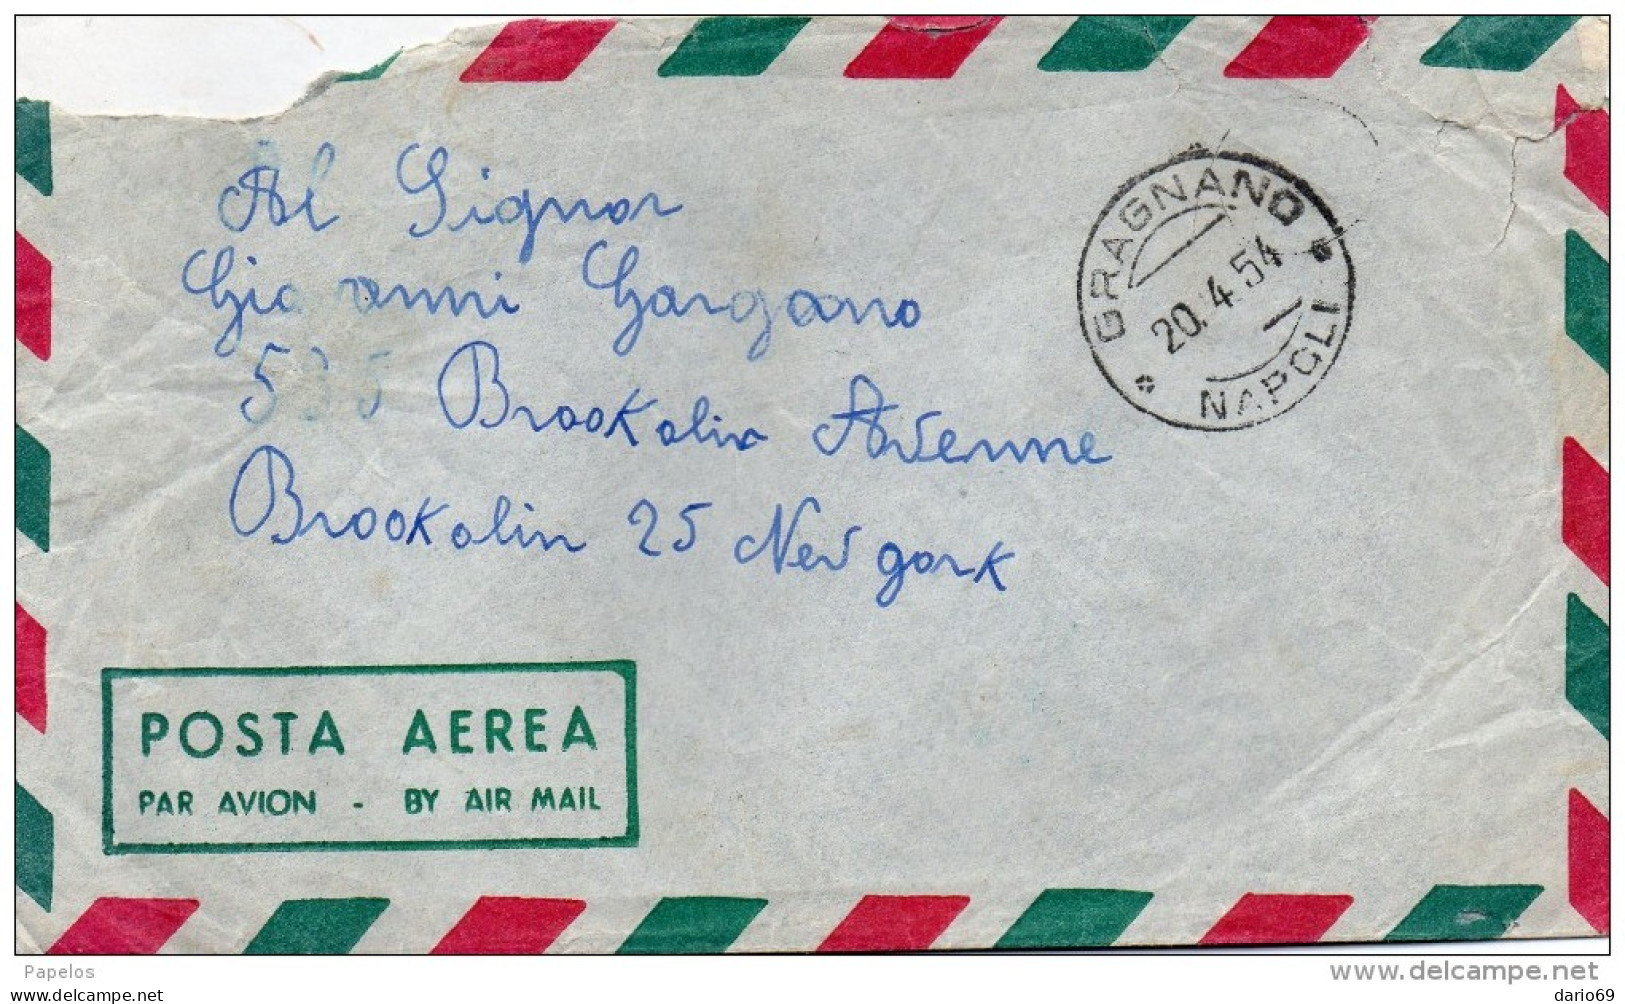 Al Signor
Giovanni Gargano
535 Brookolin Avenne
Brookolin 25 New york
GRAGNANO
20.4.54
NAPOLI
POSTA AEREA
PAR AVION - BY AIR MAIL
Papelos
www.delcampe.net
dario69